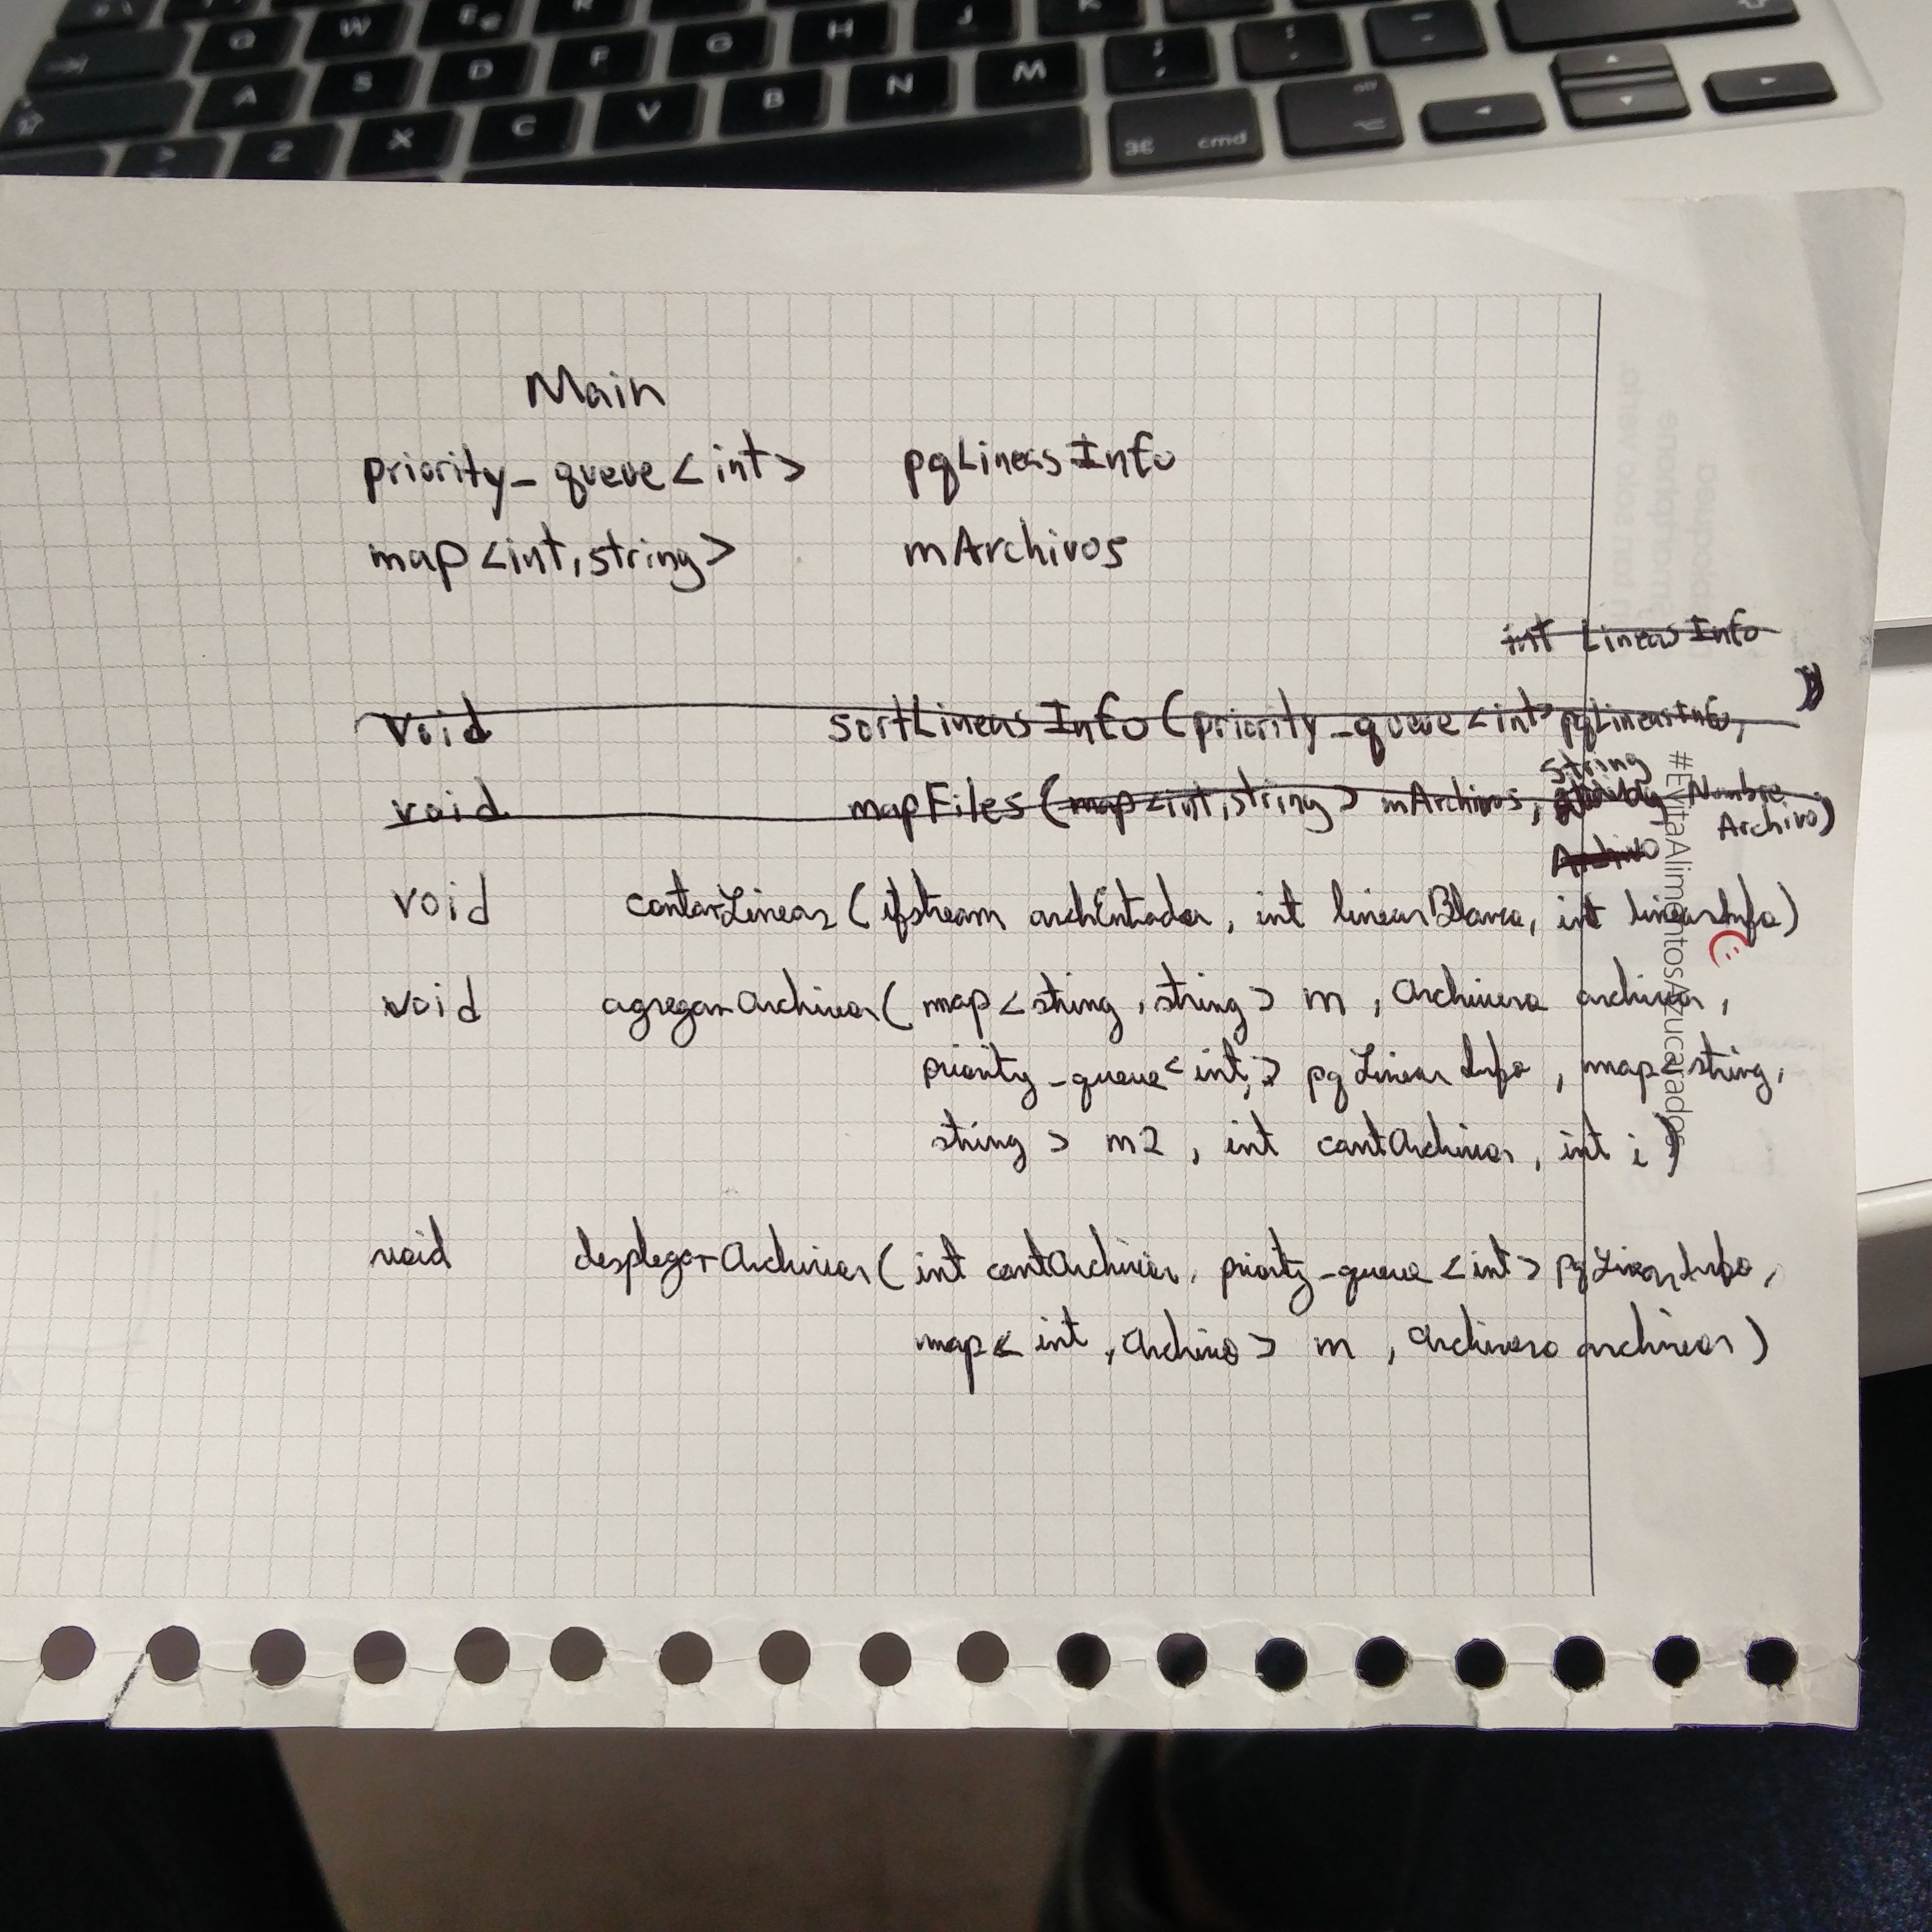 Main
priority_queue<int> pqLineasInfo
map<int,string> mArchivos
int LineasInfo
void sortLineasInfo(priority_queue<int> pqLineasInfo, )
string
void mapFiles(map<int,string> mArchivos, Nombre
Archivo)
Archivo
void contarLineas(ifstream archEntrada, int lineasBlanco, int lineasInfo)
void agregarArchivos(map<string, string> m, Archivero archivos,
priority_queue<int,> pqLineasInfo, map<string,
string> m2, int cantArchivos, int i)
void desplegarArchivos(int cantArchivos, priority_queue<int> pqLineasInfo,
map<int, Archivo> m, Archivero archivos)
#EvitaAlimentosAzucarados
Q W R J K
A S D F G H
Z X C V B N M
⌘ cmd